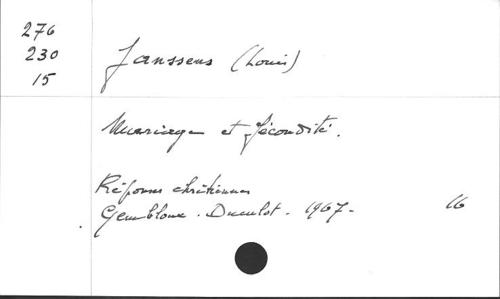 276
230
15
Janssens (Louis)
Mariage et fécondité.
Réponses chrétiennes
Gembloux. Duculot. 1967-
16